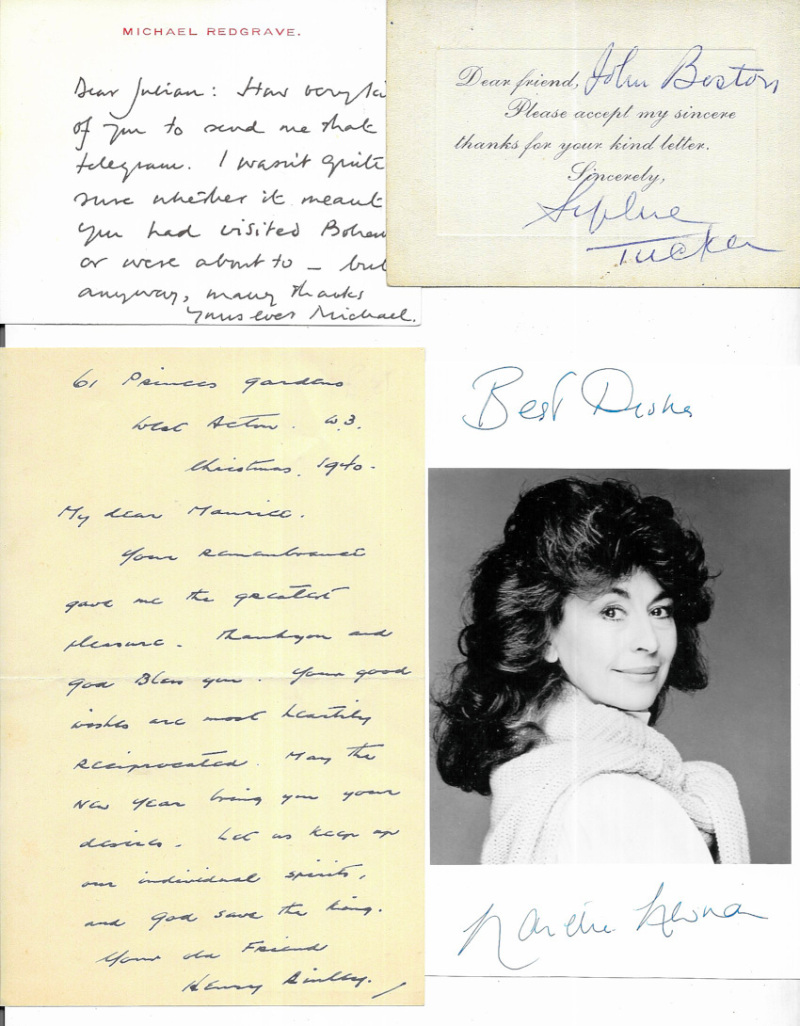 MICHAEL REDGRAVE.
Dear Julian: How very ki
of you to send me that
telegram. I wasn't quite
sure whether it meant
you had visited Bohem
or were about to – but
anyway, many thanks
Yours ever Michael.
Dear friend, John Boston
Please accept my sincere
thanks for your kind letter.
Sincerely,
Sophie
Tucker
61 Princes Gardens
West Acton. W.3.
Christmas, 1940.
My dear Maurice.
Your remembrance
gave me the greatest
pleasure. Thankyou and
God Bless you. Your good
wishes are most heartily
reciprocated. May the
New Year bring you your
desires. Let us keep up
our individual spirits,
and God save the King.
Your old Friend
Henry
Best Wishes
Nanette Newman